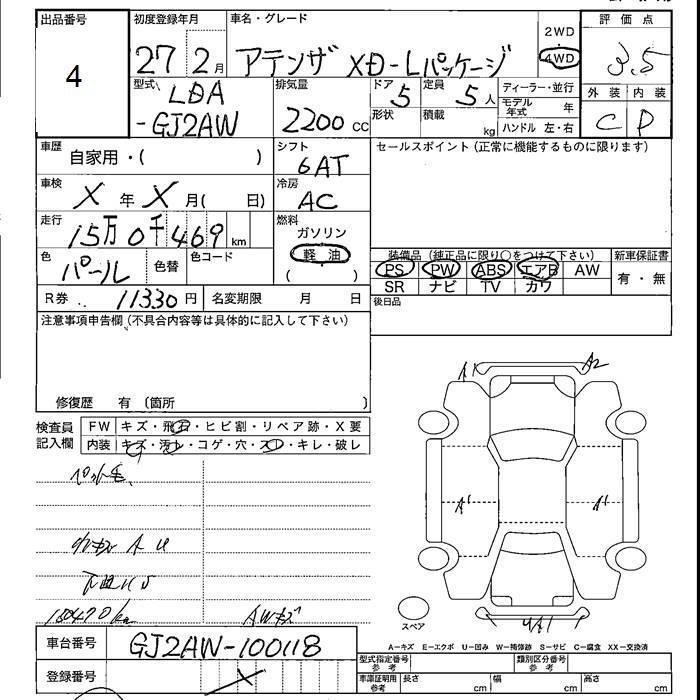 出品番号 初度登録年月 車名・グレード 2WD 評価点
4 27 2月 アテンザ XD-Lパッケージ 4WD 3.5
型式 排気量 ドア 定員 ディーラー・並行 外装 内装
LDA 5 5人 モデル年式 年 C D
-GJ2AW 2200 cc 形状 積載 kg ハンドル 左・右
車歴 シフト セールスポイント(正常に機能するものに限ります)
自家用・( ) 6AT
車検 冷房
X 年 X 月( 日) AC
走行 燃料
15万0千469 km ガソリン
色 色替 色コード 軽油
パール ( )
装備品(純正品に限り○をつけて下さい) 新車保証書
PS PW ABS エアB AW 有・無
SR ナビ TV カワ
R券 11330円 名変期限 月 日 後日品
注意事項申告欄(不具合内容等は具体的に記入して下さい)
修復歴 有 (箇所 )
検査員記入欄 FW キズ・飛石・ヒビ割・リペア跡・X要
内装 キズ・汚レ・コゲ・穴・スレ・キレ・破レ
ペット毛
A1 A2
A1 A1
AWキズ
スペア
A-キズ E-エクボ U-凹み W-補修跡 S-サビ C-腐食 XX-交換済
車台番号 GJ2AW-100118
型式指定番号 参考 類別区分番号 参考
登録番号 X
車庫証明用 参考 長さ cm 幅 cm 高さ cm